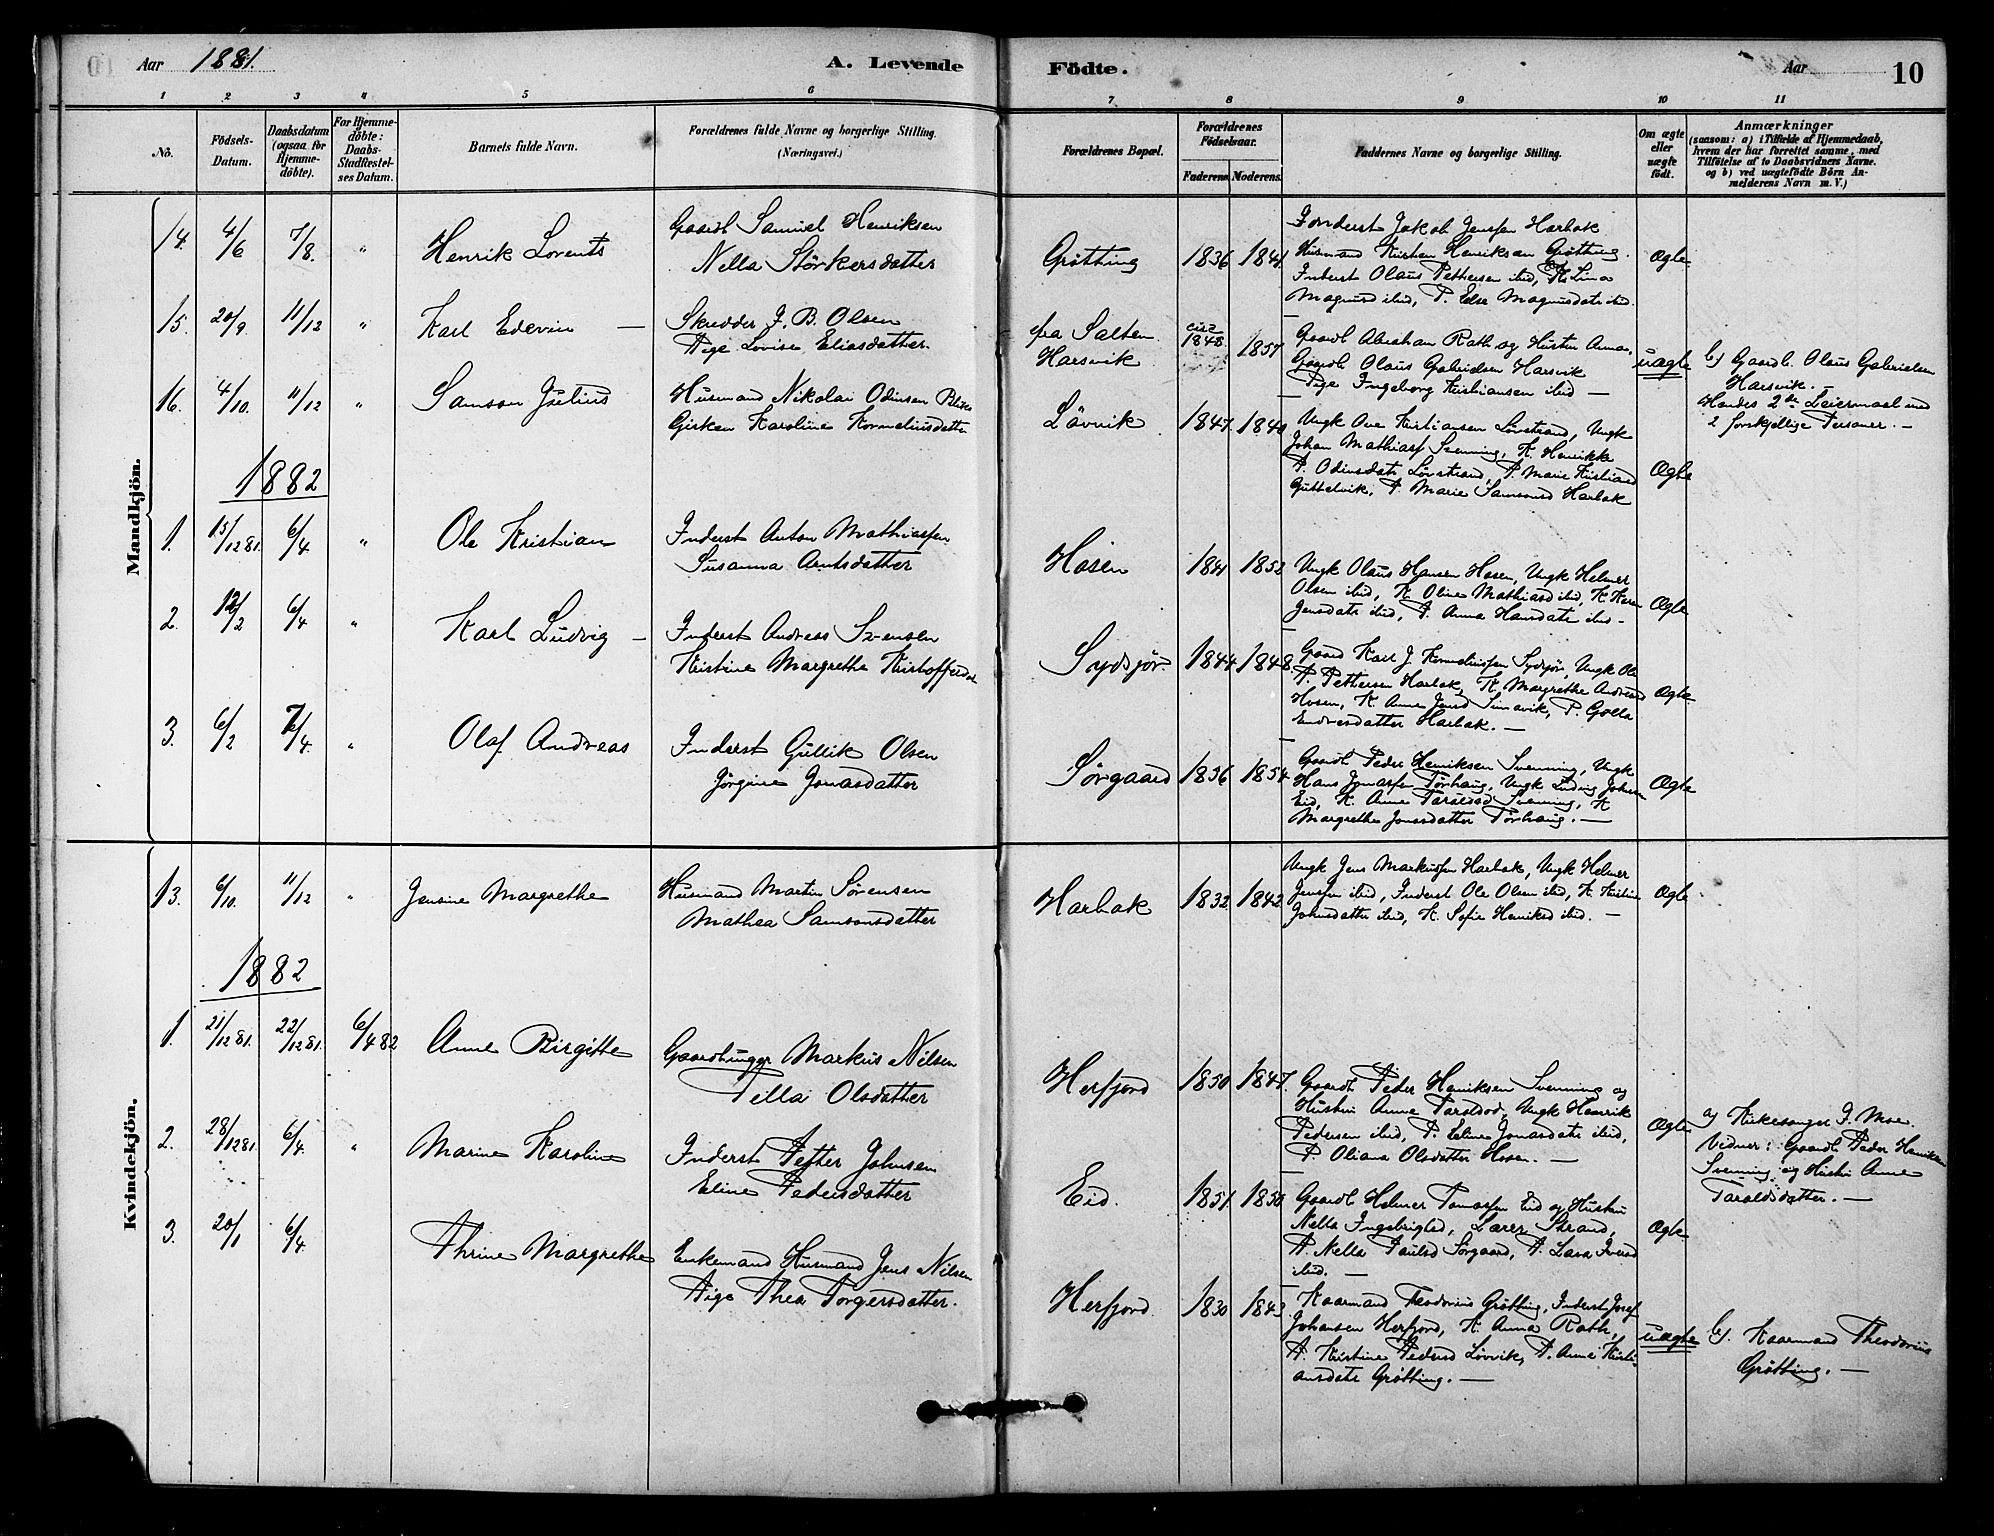 Aar 1881.
A. Levende Födte.
Aar
10
1 2 3 4 5 6 7 8 9 10 11
Nö.
Födsels-Datum.
Daabsdatum (ogsaa for Hjemme-döbte).
For Hjemme-döbte: Daabs-Stadfæstel-ses Datum.
Barnets fulde Navn.
Forældrenes fulde Navne og borgerlige Stilling. (Næringsvei.)
Forældrenes Bopæl.
Forældrenes Födselsaar.
Faderens. Moderens.
Faddernes Navne og borgerlige Stilling.
Om ægte eller uægte födt.
Anmærkninger
(saasom: a) i Tilfælde af Hjemmedaab,
hvem der har forrettet samme, med
Tilföielse af to Daabsvidners Navne.
og b) ved uægtefödte Börn An-
melderens Navn m. V.)
Mandkjön.
14. 4/6 7/8. " Henrik Lorents
Gaardb Samuel Henriksen
Nella Størkersdatter
Grøtting 1836 1841.
Inderst Jakob Jensen Harbak
Husmand Kristen Henriksen Grøtting.
Inderst Olaus Pettersen ibid, K. Lina
Magnusd ibid, P. Else Magnusdatr ibid.
Ægte
15. 20/9 11/12 " Karl Edevin —
Skrædder J. B. Olsen
Pige Lovise Eliasdatter.
fra Salten
Harsvik
1848 1857
Gaardb Abraham Rath og Hustru Anna,
Gaardb Olaus Gabrielsen Harsvik
Pige Ingeborg Kristiansen ibid —
uægte
b) Gaardb. Olaus Gabrielsen
Harsvik. —
Hendes 2det Leiermaal med
2 forskjellige Personer. —
16. 4/10. 11/12 " Samson Julius
Husmand Nikolai Odinsen
Karoline Kornelinsdatter
Løvvik 1847. 1840
Ungk Ove Kristiansen Løvstrand, Ungk
Johan Mathiass Svenning, K. Henrikke
P. Odinsdatr Løvstrand, P. Marie Kristiansd
P. Marie Samsonsd Harbak
Ægte
1882
1. 15/12 81. 6/4 " Ole Kristian
Inderst Anton Mathiassen
Susanna Arntsdatter
Hosen 1841 1852
Ungk Olaus Hansen Hosen, Ungk Helmer
Olsen ibid, K. Oline Mathiasd ibid, K Karen
Jensdatr ibid, P. Anna Hansdatr ibid -
Ægte
2. 12/2 6/4 " Karl Ludvig —
Inderst Andreas Sørensen
Kristine Margrethe Kristoffersdtr
Sydsjør. 1844 1848.
Gaard Karl J. Korneliussen Sydsjør, Ungk Ole
A. Pettersen Harbak, K. Margrethe Andreasd
Hosen, K. Anne Jensd P. Golla
Endresdatter Harbak. —
Ægte
3. 6/2 7/4. " Olaf Andreas
Inderst Gullik Olsen
Jørgine Jonasdatter
Sørgaard 1836 1854
Gaardb Peder Henriksen Svenning, Ungk
Hans Jonassen Tørhaug, Ungk Ludvig Johnsen
Eid, K. Anne Taraldsd Svenning, K
Margrethe Jonasdatter Tørhaug. —
Ægte
Kvindekjön.
13. 6/10. 11/12 " Jensine Margrethe
Husmand Martin Sørensen
Mathea Samsonsdatter
Harbak 1832 1842
Ungk Jens Markussen Harbak, Ungk Helmer
Jenssen ibid, Inderst Ole Olsen ibid, K Kristine
Johnsdatr ibid, K. Sofie Henriksd ibid. —
Ægte
1882
1. 21/12 81. 22/12 81. 6/4 82 Anne Birgitte
Gaardbruger Markus Nilsen
Pella Olsdatter
Herfjord 1830 1847.
Gaardb Peder Henriksen Svenning og
Hustru Anne Taraldsd, Ungk Henrik
Pedersen ibid, P. Eline Jonasdatr ibid,
P. Oliana Olsdatter Hosen. —
Ægte
a) Kirkesanger J. Moe.
Vidner: Gaardb Peder Henriksen
Svenning og Hustru Anne
Taraldsdatter. —
2. 28/12 81. 6/4. " Marine Karoline
Inderst Petter Johnsen
Eline Pedersdatter
Eid. 1851. 1850
Gaardb Helmer Tomassen Eid og Hustru
Nella Ingebrigtsd, Lærer Strand,
P. Nella Paulsd Sørgaard, P. Lava Iversd
ibid. —
Ægte
3. 20/1 6/4. Thrine Margrethe
Enkemand Husmand Jens Nilsen
Pige Thea Torgersdatter.
Herfjord 1830 1843.
Kaarmand Theodorius Grøtting, Inderst Josef
Johansen Herfjord, K. Anna Rath,
P. Kristine Pedersd Løvvik, P. Anne Kristi-
ansdatr Grøtting. —
uægte
b). Kaarmand Theodorius
Grøtting. —